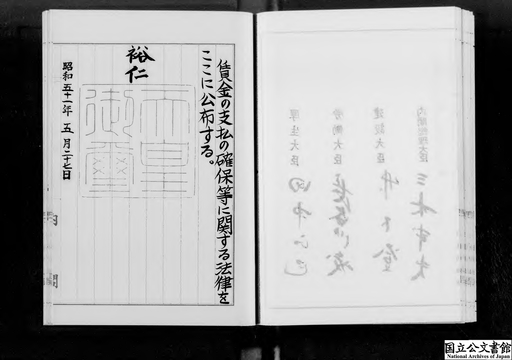 賃金の支払の確保等に関する法律を
ここに公布する。
裕仁
天皇
御璽
昭和五十一年五月二十七日
内閣総理大臣
三木武夫
建設大臣
竹下登
労働大臣
長谷川峻
厚生大臣
田中正巳
国立公文書館
National Archives of Japan